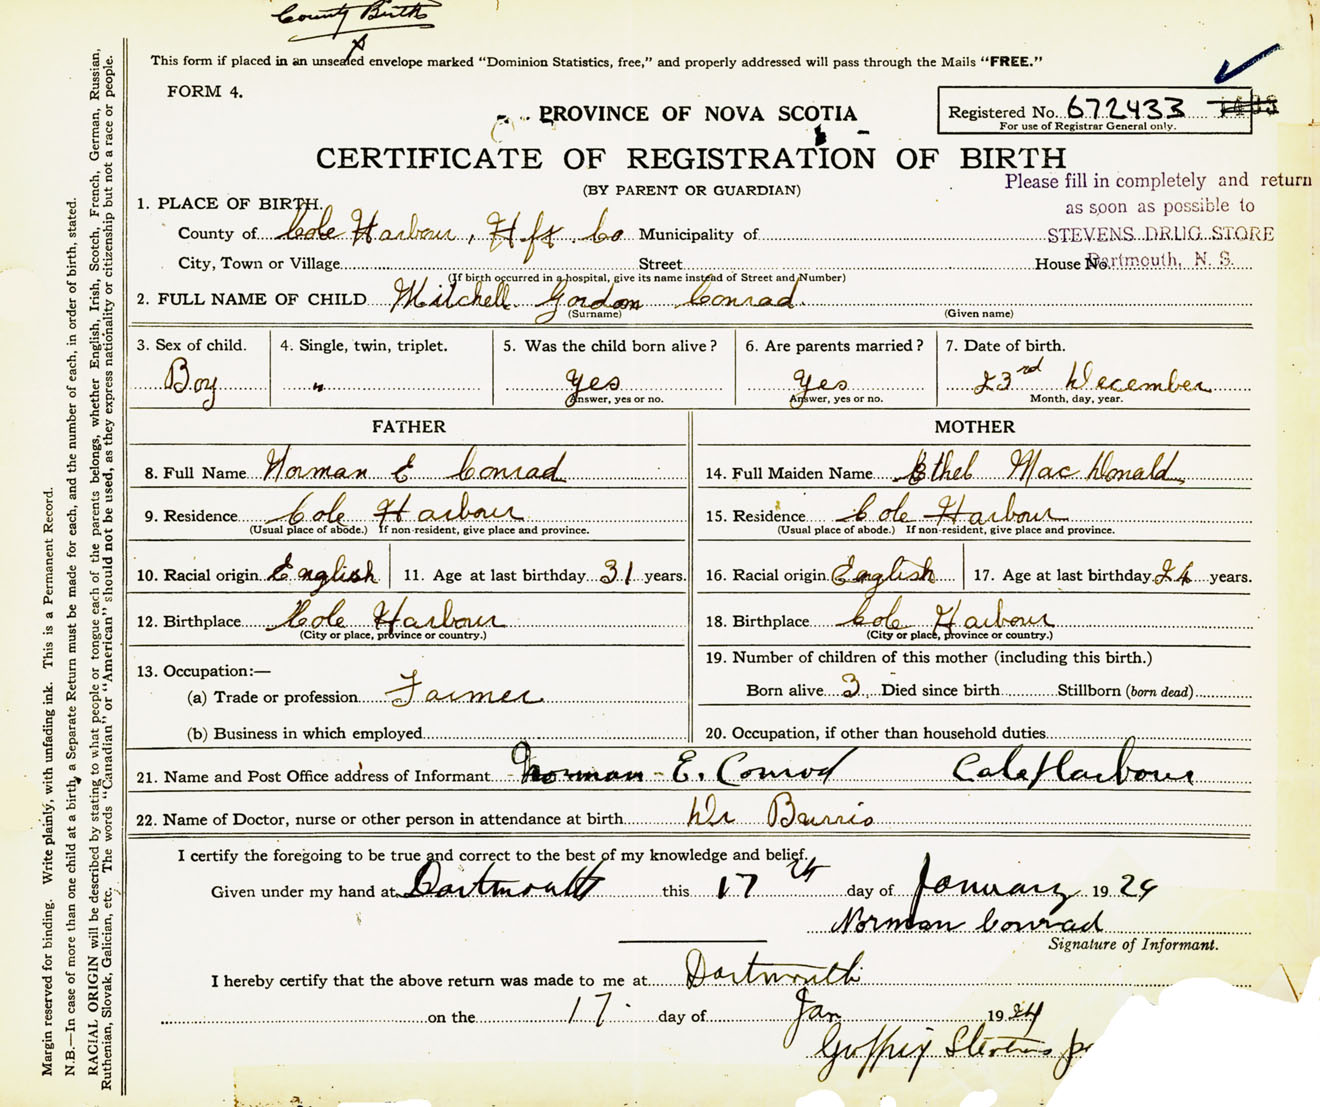 County Birth
This form if placed in an unsealed envelope marked "Dominion Statistics, free," and properly addressed will pass through the Mails "FREE."
FORM 4.
PROVINCE OF NOVA SCOTIA
Registered No. 672433
For use of Registrar General only.
CERTIFICATE OF REGISTRATION OF BIRTH
(BY PARENT OR GUARDIAN)
Please fill in completely and return
as soon as possible to
STEVENS DRUG STORE
Dartmouth, N. S.
1. PLACE OF BIRTH.
County of Cole Harbour, Hfx Co Municipality of
City, Town or Village Street House No.
(If birth occurred in a hospital, give its name instead of Street and Number)
2. FULL NAME OF CHILD Mitchell Gordon Conrad
(Surname) (Given name)
3. Sex of child. 4. Single, twin, triplet. 5. Was the child born alive? 6. Are parents married? 7. Date of birth.
Boy " Yes Yes 23rd December
Answer, yes or no. Answer, yes or no. Month, day, year.
FATHER MOTHER
8. Full Name Norman E Conrad 14. Full Maiden Name Ethel Mac Donald
9. Residence Cole Harbour 15. Residence Cole Harbour
(Usual place of abode.) If non-resident, give place and province. (Usual place of abode.) If non-resident, give place and province.
10. Racial origin English 11. Age at last birthday 31 years. 16. Racial origin English 17. Age at last birthday years.
12. Birthplace Cole Harbour 18. Birthplace Cole Harbour
(City or place, province or country.) (City or place, province or country.)
13. Occupation:— 19. Number of children of this mother (including this birth.)
(a) Trade or profession Farmer Born alive 3 Died since birth Stillborn (born dead)
(b) Business in which employed 20. Occupation, if other than household duties
21. Name and Post Office address of Informant Norman E. Conrod Cole Harbour
22. Name of Doctor, nurse or other person in attendance at birth Dr Burris
I certify the foregoing to be true and correct to the best of my knowledge and belief.
Given under my hand at Dartmouth this 17th day of January 1924
Norman Conrad
Signature of Informant.
I hereby certify that the above return was made to me at Dartmouth
on the 17 day of Jan 1924
Stevens Jr
Margin reserved for binding. Write plainly, with unfading ink. This is a Permanent Record.
N.B.—In case of more than one child at a birth, a Separate Return must be made for each, and the number of each, in order of birth, stated.
RACIAL ORIGIN will be described by stating to what people or tongue each of the parents belongs, whether English, Irish, Scotch, French, German, Russian,
Ruthenian, Slovak, Galician, etc. The words "Canadian" or "American" should not be used, as they express nationality or citizenship but not a race or people.